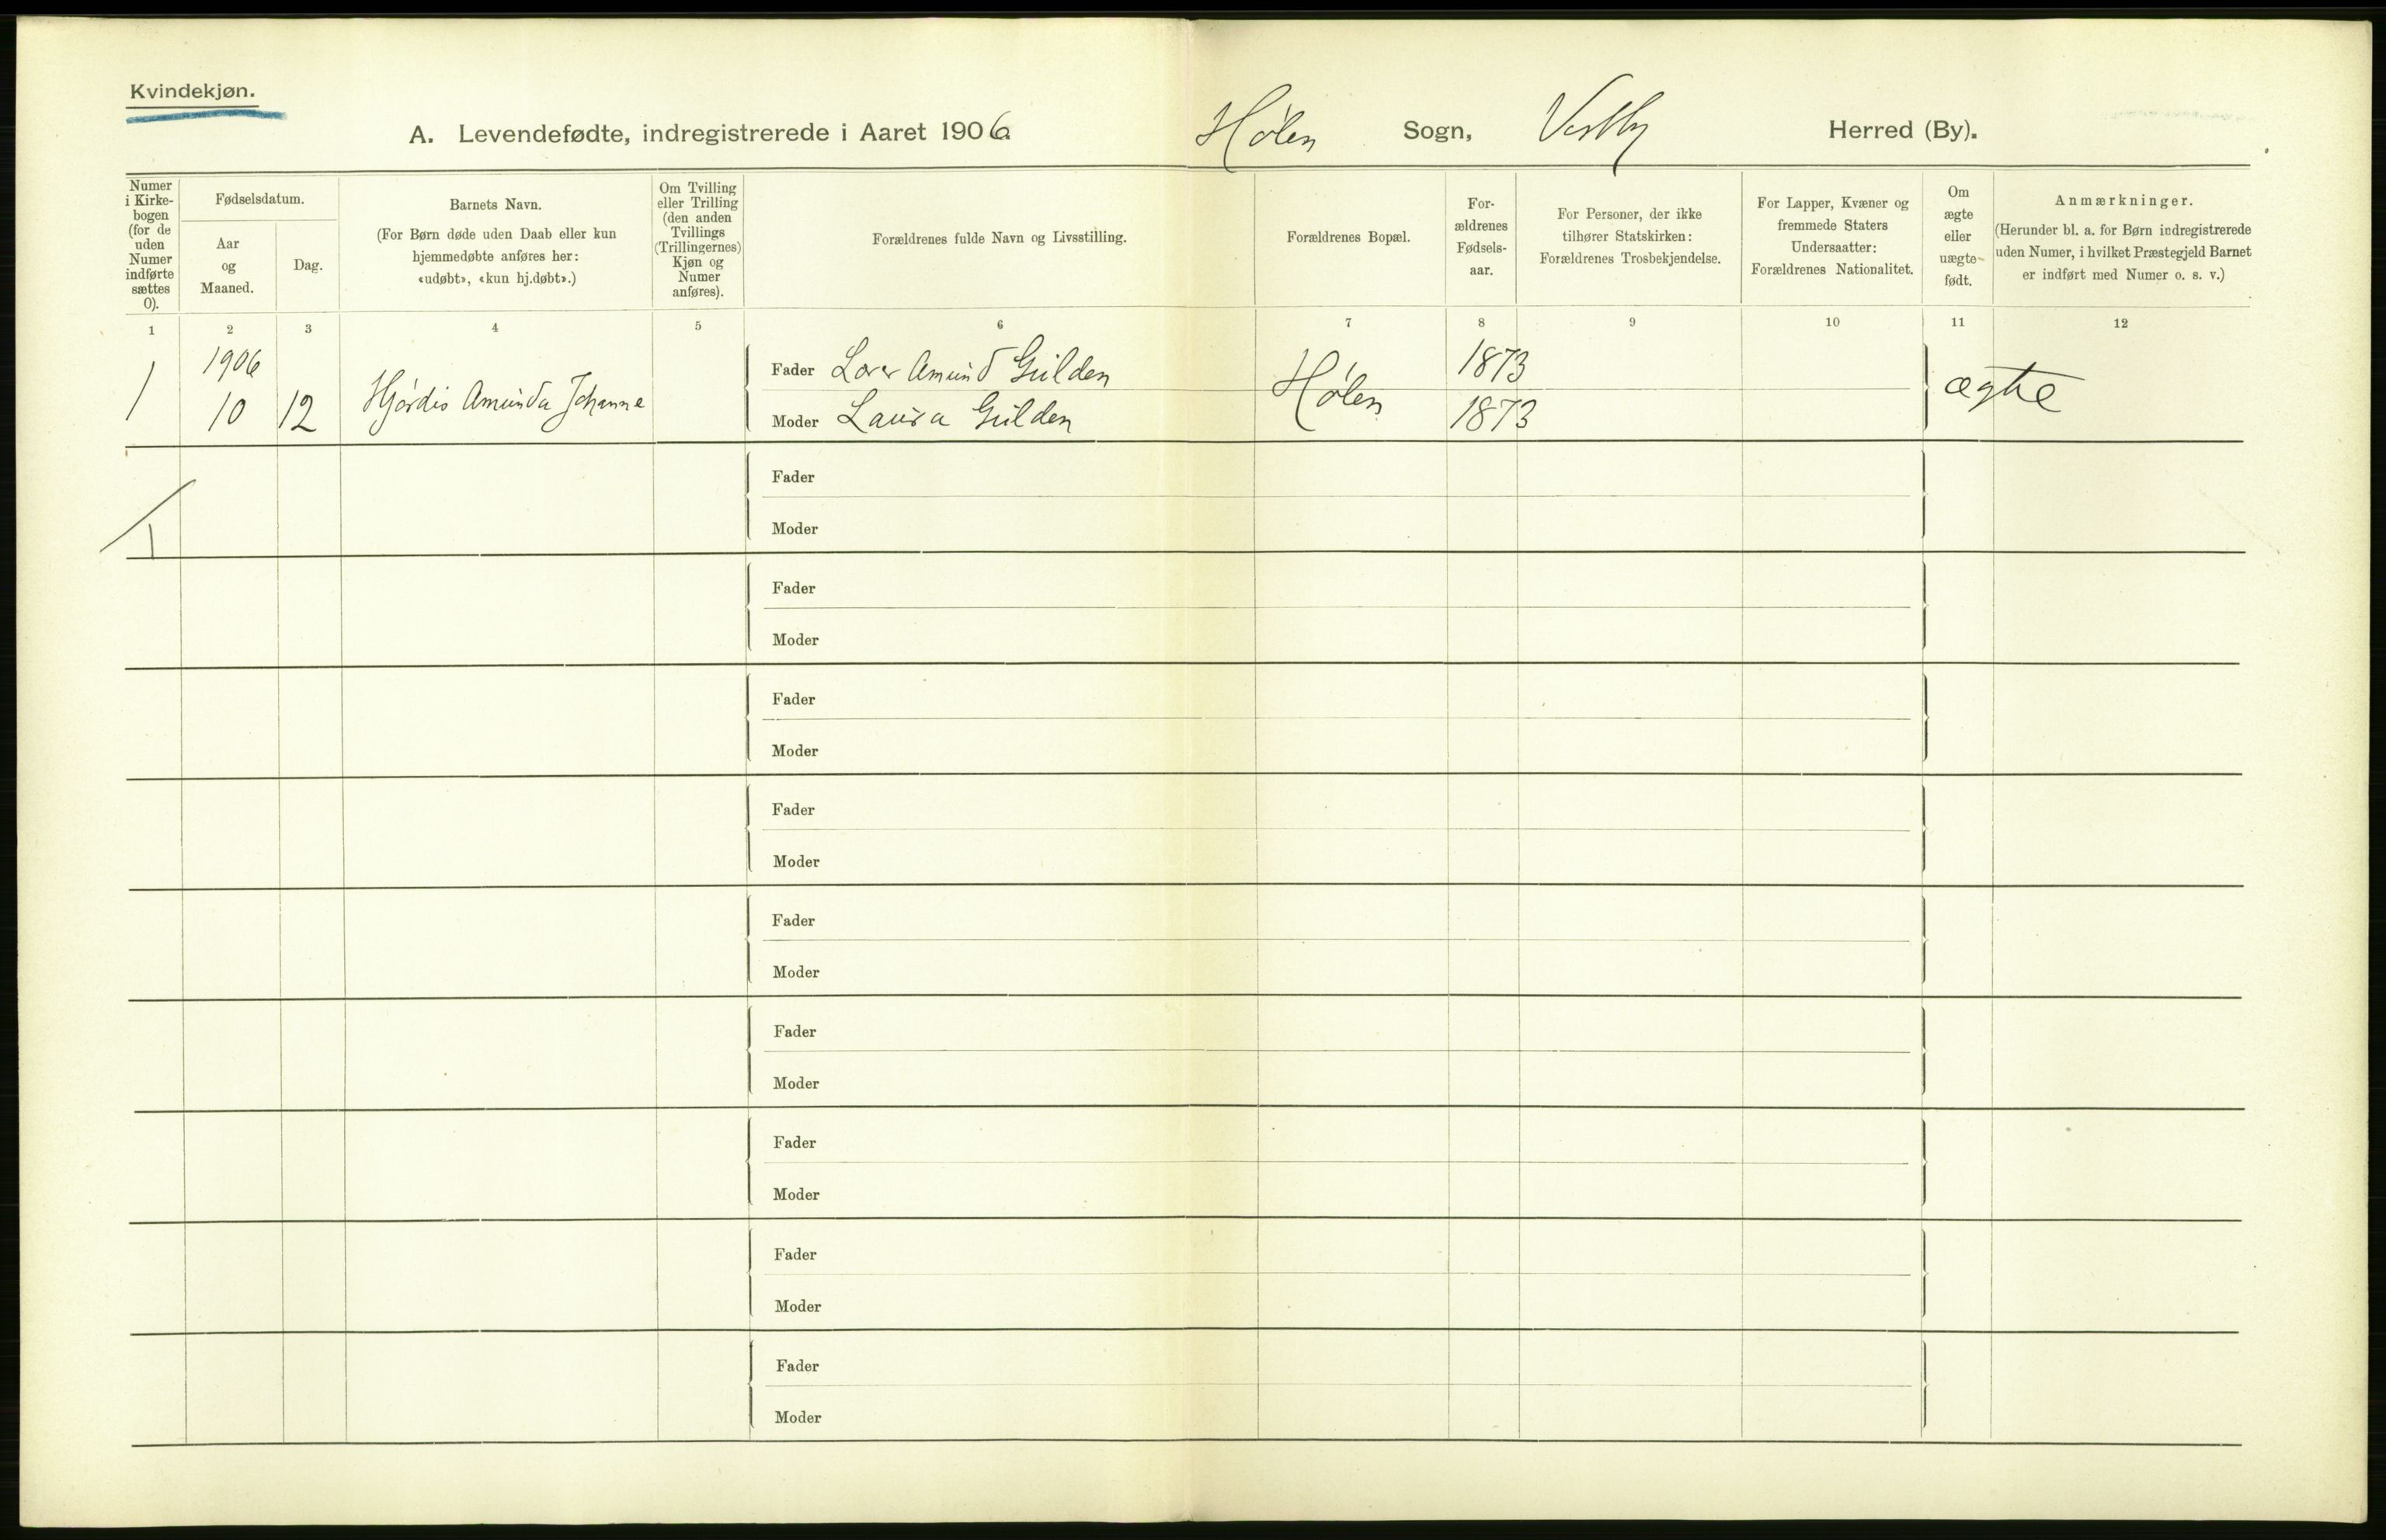 Kvindekjøn.
A. Levendefødte, indregistrerede i Aaret 1906 Hølen Sogn, Vestby Herred (By).
Numer i Kirke-bogen (for de uden Numer indførte sættes 0).
Fødselsdatum.
Aar og Maaned.
Dag.
Barnets Navn.
(For Børn døde uden Daab eller kun
hjemmedøbte anføres her:
«udøbt», «kun hj.døbt».)
Om Tvilling
eller Trilling
(den anden
Tvillings
(Trillingernes)
Kjøn og
Numer
anføres).
Forældrenes fulde Navn og Livsstilling.
Forældrenes Bopæl.
For-
ældrenes
Fødsels-
aar.
For Personer, der ikke
tilhører Statskirken:
Forældrenes Trosbekjendelse.
For Lapper, Kvæner og
fremmede Staters
Undersaatter:
Forældrenes Nationalitet.
Om
ægte
eller
uægte-
født.
Anmærkninger.
(Herunder bl. a. for Børn indregistrerede
uden Numer, i hvilket Præstegjeld Barnet
er indført med Numer o. s. v.)
1 2 3 4 5 6 7 8 9 10 11 12
1906 Fader Lærer Amund Gulden 1873
1 10 12 Hjørdis Amunda Johanne Hølen ægte
Moder Laura Gulden 1873
Fader
1 Moder
Fader
Moder
Fader
Moder
Fader
Moder
Fader
Moder
Fader
Moder
Fader
Moder
Fader
Moder
Fader
Moder